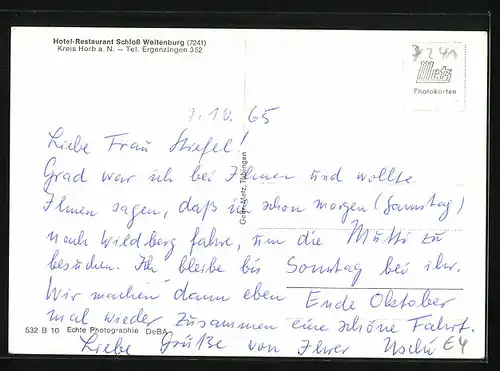 Hotel-Restaurant Schloß Weitenburg (7241)
Kreis Horb a. N. — Tel. Ergenzingen 352
7241
Metz
Photokarten
1.10.65
Liebe Frau Stiefel!
Grad war ich bei Ihnen und wollte
Ihnen sagen, daß ich schon morgen (Samstag)
nach Wildberg fahre, um die Mutti zu
besuchen. Ich bleibe bis Sonntag bei ihr.
Wir machen dann eben Ende Oktober
mal wieder zusammen eine schöne Fahrt.
Liebe Grüße von Ihrer Uschi
E4
532 B 10 Echte Photographie DeBA
Gebr. Metz, Tübingen